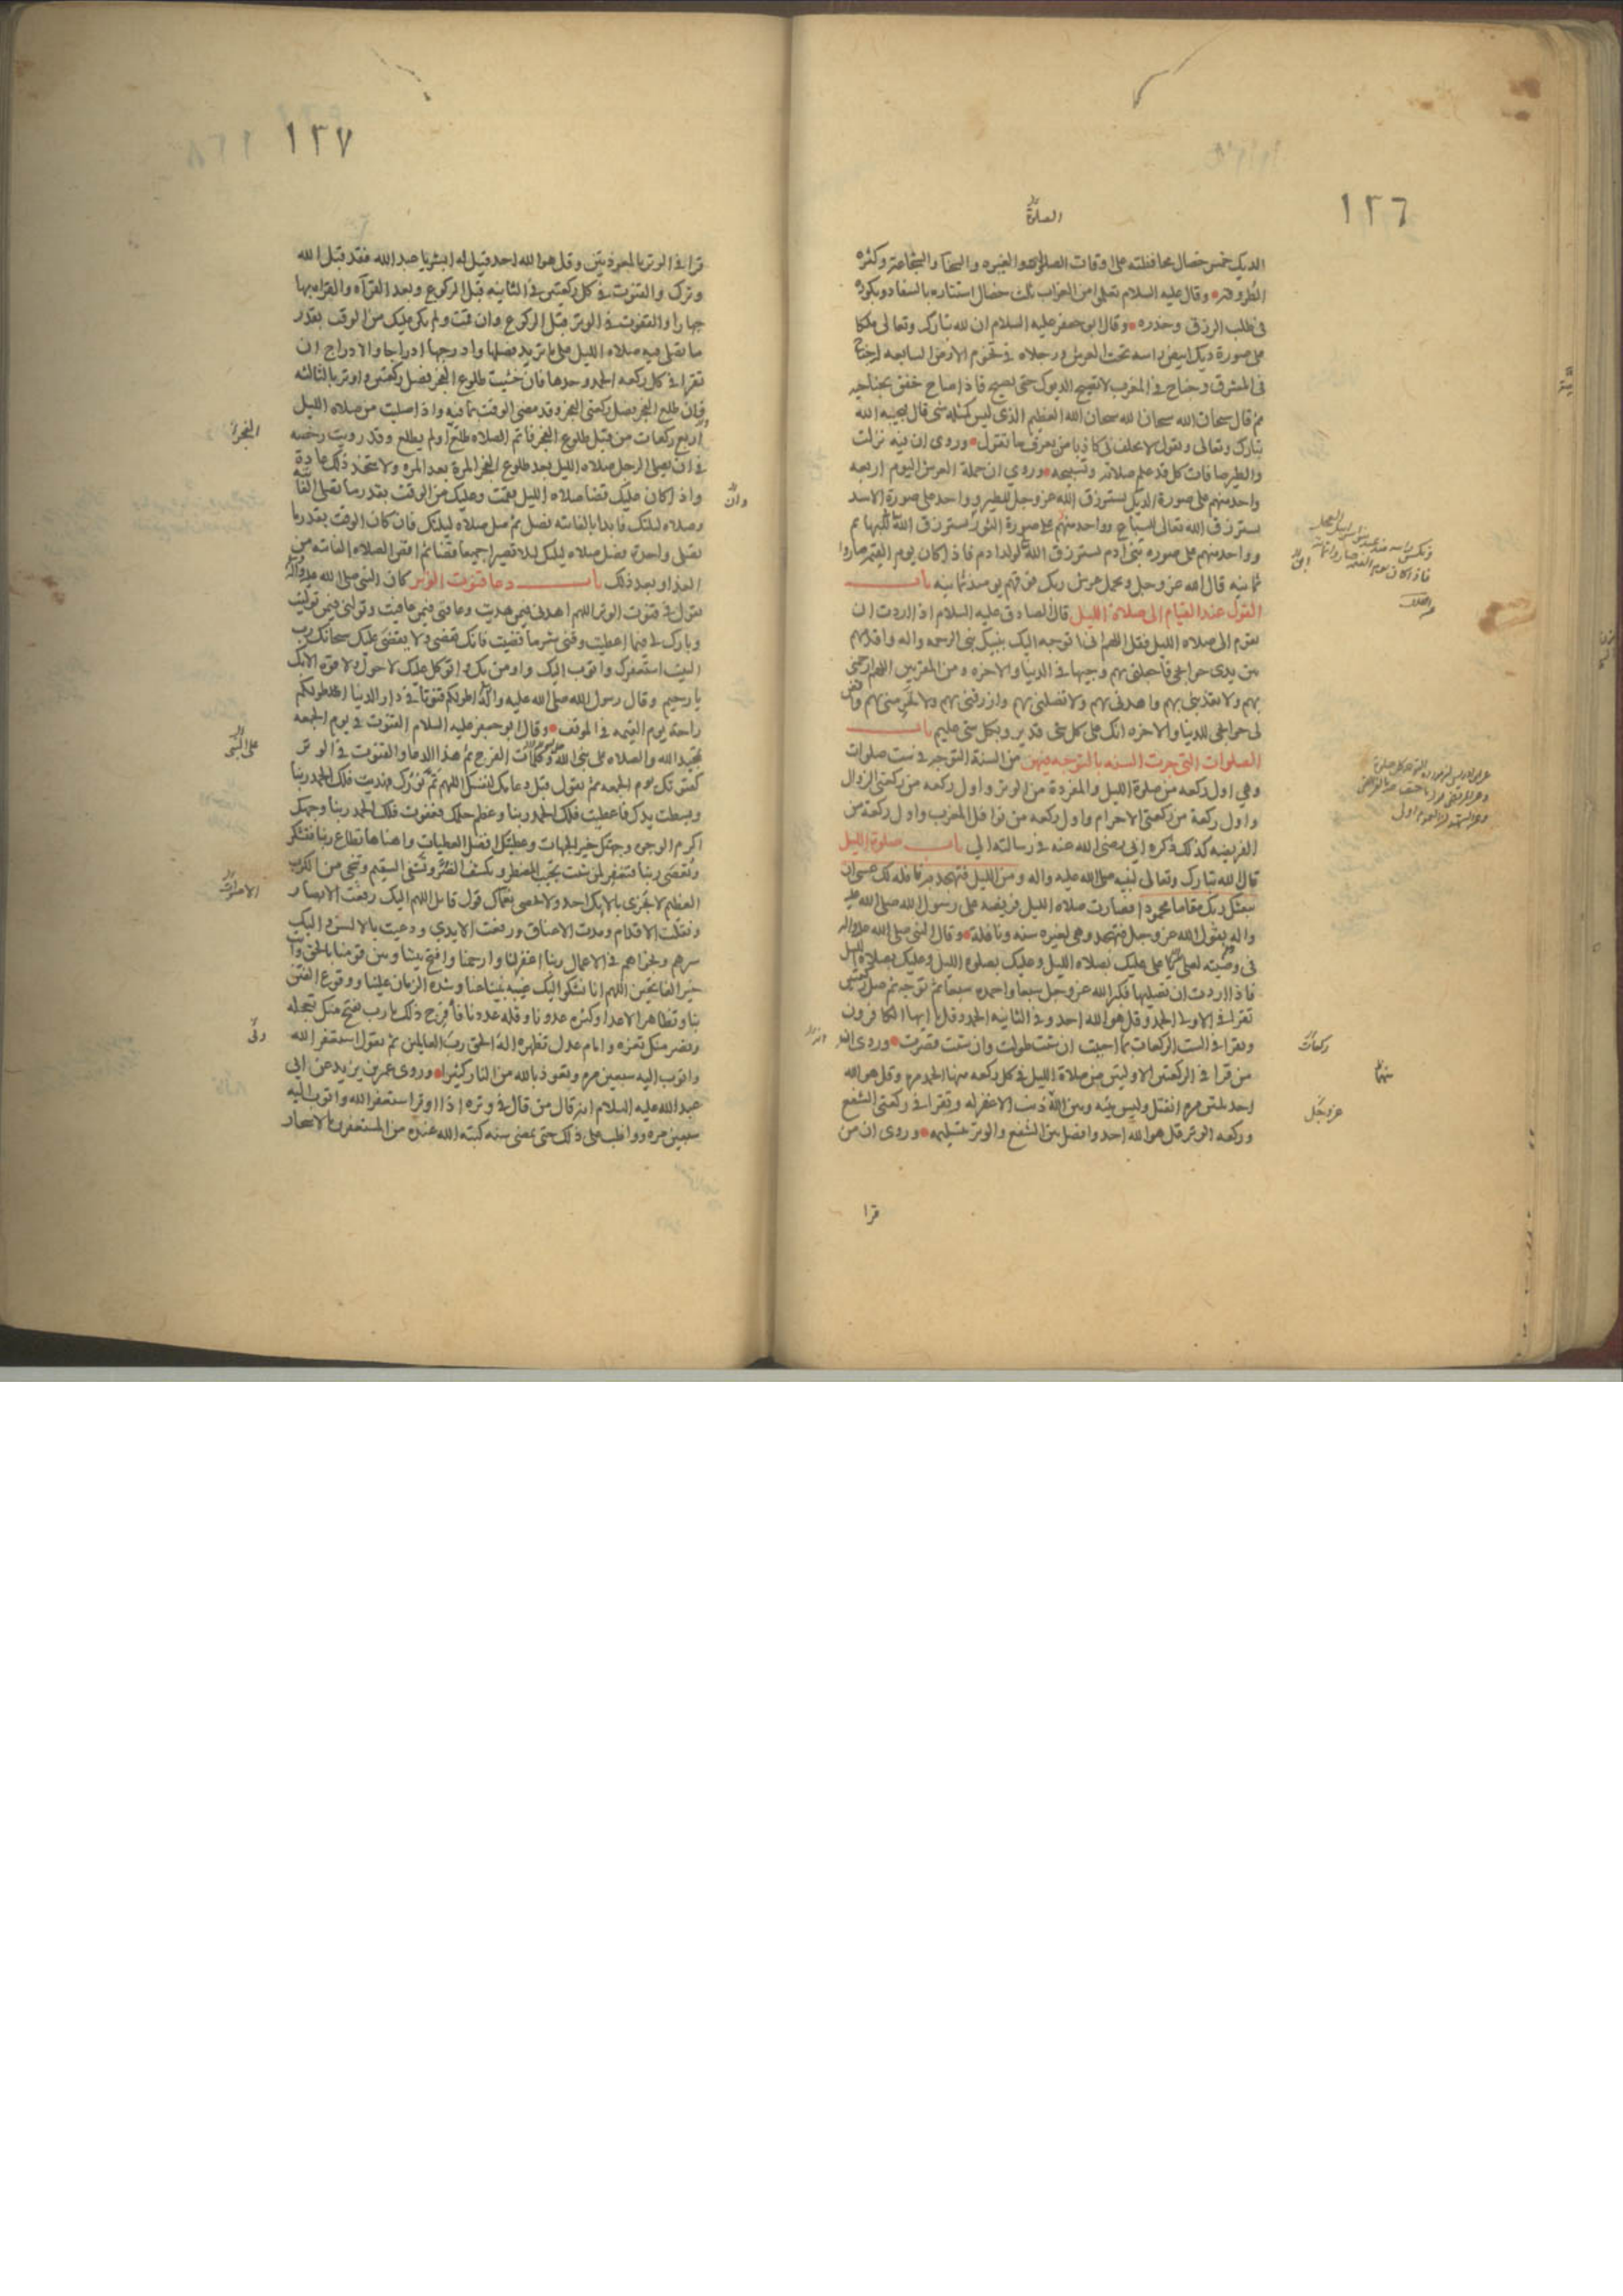 ١٢٦
الصلوة
الديك خمس خصال محافظته على اوقات الصلوة والغيره والسخا والشجاعة وكثره
الطروقه وقال عليه السلام تعلموا من الغراب ثلث خصال استتاره بالسفاد وبكوره
فى طلب الرزق وحذره وقال ابو جعفر عليه السلام ان لله تبارك وتعالى ملكا
على صورة ديك ابيض راسه تحت العرش ورجلاه فى تخوم الارض السابعه له جناح
فى المشرق وجناح فى المغرب لا تصيح الديوك حتى يصيح فاذا صاح خفق بجناحيه
ثم قال سبحان الله سبحان الله سبحان الله العظيم الذى ليس كمثله شى قال فيجيبه الله
تبارك وتعالى ويقول لا يحلف بى كاذبا من يعرف ما تقول وروى ان فيه نزلت
والطير صافات كل قد علم صلاته وتسبيحه وروي ان حملة العرش اليوم اربعه
واحد منهم على صورة الديك يسترزق الله عز وجل للطير وواحد على صورة الاسد
يسترزق الله تعالى للسباع وواحد منهم على صورة الثور يسترزق الله للبهائم
وواحد منهم على صوره بنى ادم يسترزق الله لولد ادم فاذا كان يوم القيمه صاروا
ثمانيه قال الله عز وجل ويحمل عرش ربك فوقهم يومئذ ثمانيه باب
القول عند القيام الى صلاة الليل قال الصادق عليه السلام اذا اردت ان
تقوم الى صلاه الليل فقل اللهم انى اتوجه اليك بنبيك نبى الرحمه واله واقدمهم
بين يدى حوايجى فاجعلنى بهم وجيها فى الدنيا والاخره ومن المقربين اللهم ارحمنى
بهم ولا تعذبنى بهم واهدنى بهم ولا تضلنى بهم وارزقنى بهم ولا تحرمنى بهم واقض
لى حوايجى للدنيا والاخره انك على كل شى قدير وبكل شى عليم باب
الصلوات التى جرت السنه بالتوجه فيهن من السنة التوجه فى ست صلوات
وهي اول ركعه من صلوة الليل والمفردة من الوتر واول ركعه من ركعتى الزوال
واول ركعة من ركعتى الاحرام واول ركعه من نوافل المغرب واول ركعة من
الفريضه كذلك ذكره ابى رضى الله عنه فى رسالته الي باب صلوة الليل
قال الله تبارك وتعالى لنبيه صلى الله عليه واله ومن الليل فتهجد به نافله لك عسى ان
يبعثك ربك مقاما محمودا فصارت صلاه الليل فريضه على رسول الله صلى الله عليه
واله بقول الله عز وجل فتهجد وهى لغيره سنه ونافلة وقال النبى صلى الله عليه واله
فى وصيته لعلى يا على عليك بصلاه الليل وعليك بصلوة الليل وعليك بصلاة الليل
فاذا اردت ان تصليها فكبر الله عز وجل سبعا واحمده سبعا ثم توجه ثم صل ركعتين
تقرا فى الاولى الحمد وقل هو الله احد وفى الثانيه الحمد وقل يا ايها الكافرون
وتقرا فى الست الركعات بما احببت ان شئت طولت وان شئت قصرت وروى ان
من قرا فى الركعتين الاوليتين من صلاة الليل فى كل ركعه منها الحمد مره وقل هو الله
احد ثلثين مره انفتل وليس بينه وبين الله ذنب الا غفر له وتقرا فى ركعتى الشفع
وركعه الوتر قل هو الله احد وافصل بين الشفع والوتر بتسليمه وروى ان من
قرا
ركعات
منهما
عز وجل
١٢٧
قرا فى الوتر بالمعوذتين وقل هو الله احد قيل له ابشر يا عبد الله فقد قبل الله
وترك والقنوت فى كل ركعتين فى الثانيه قبل الركوع وبعد القرآه والقراه بها
جهارا والقنوت فى الوتر قبل الركوع وان قمت ولم يكن عليك من الوقت بقدر
ما تصلى فيه صلاه الليل على ما تريد فصلها وادرجها ادراجا والادراج ان
تقرا فى كل ركعه الحمد وحدها فان خشيت طلوع الفجر فصل ركعتين واوتر بالثالثه
فان طلع الفجر فصل ركعتى الفجر وقد مضى الوقت بما فيه واذا صليت من صلاه الليل
اربع ركعات من قبل طلوع الفجر فاتم الصلاه طلع او لم يطلع وقد رويت رخصه
فى ان يصلى الرجل صلاه الليل بعد طلوع الفجر المرة بعد المره ولا يتخذ ذلك عادة
واذا كان عليك قضا صلاه الليل فقمت وعليك من الوقت بقدر ما تصلى الفائته
وصلاه ليلتك فابدا بالفائته فصل ثم صل صلاه ليلتك فان كان الوقت بقدر ما
تصلى واحدة فصل صلاه ليلتك ليلا تصيرا جميعا قضا ثم اقض الصلاه الفائته من
الغد او بعد ذلك باب دعا قنوت الوتر كان النبى صلى الله عليه واله
يقول فى قنوت الوتر اللهم اهدنى فيمن هديت وعافنى فيمن عافيت وتولنى فيمن توليت
وبارك لى فيما اعطيت وقنى شر ما قضيت فانك تقضى ولا يقضى عليك سبحانك رب
البيت استغفرك واتوب اليك واومن بك واتوكل عليك لا حول ولا قوة الا بك
يا رحيم وقال رسول الله صلى الله عليه واله اطولكم قنوتا فى دار الدنيا اطولكم
راحة يوم القيمه فى الموقف وقال ابو جعفر عليه السلام القنوت فى يوم الجمعه
تمجيد الله والصلاه على نبى الله وكلمات الفرج ثم هذا الدعا والقنوت فى الوتر
كقنوتك يوم الجمعه ثم تقول قبل دعائك لنفسك اللهم تم نورك فهديت فلك الحمد ربنا
وبسطت يدك فاعطيت فلك الحمد ربنا وعظم حلمك فعفوت فلك الحمد ربنا وجهك
اكرم الوجوه وجهتك خير الجهات وعطيتك افضل العطيات واهناها تطاع ربنا فتشكر
وتعصى ربنا فتغفر لمن شئت تجيب المضطر وتكشف الضر وتشفى السقيم وتنجى من الكرب
العظيم لا يجزى بالائك احد ولا يحصى نعماك قول قائل اللهم اليك رفعت الابصار
ونقلت الاقدام ومدت الاعناق ورفعت الايدي ودعيت بالالسن واليك
سرهم ونجواهم فى الاعمال ربنا اغفر لنا وارحمنا وافتح بيننا وبين قومنا بالحق وانت
خير الفاتحين اللهم انا نشكوا اليك غيبة نبينا عنا وشده الزمان علينا ووقوع الفتن
بنا وتظاهر الاعدا وكثره عدونا وقله عددنا فافرج ذلك يا رب بفتح منك تعجله
ونصر منك تعزه وامام عدل تظهره اله الحق رب العالمين ثم تقول استغفر الله
واتوب اليه سبعين مره وتعوذ بالله من النار كثيرا وروى عمر بن يزيد عن ابى
عبد الله عليه السلام انه قال من قال فى وتره اذا اوتر استغفر الله واتوب اليه
سبعين مره وواظب على ذلك حتى يمضى سنه كتبه الله عنده من المستغفرين بالاسحار
الفجر
وان
الاصوات